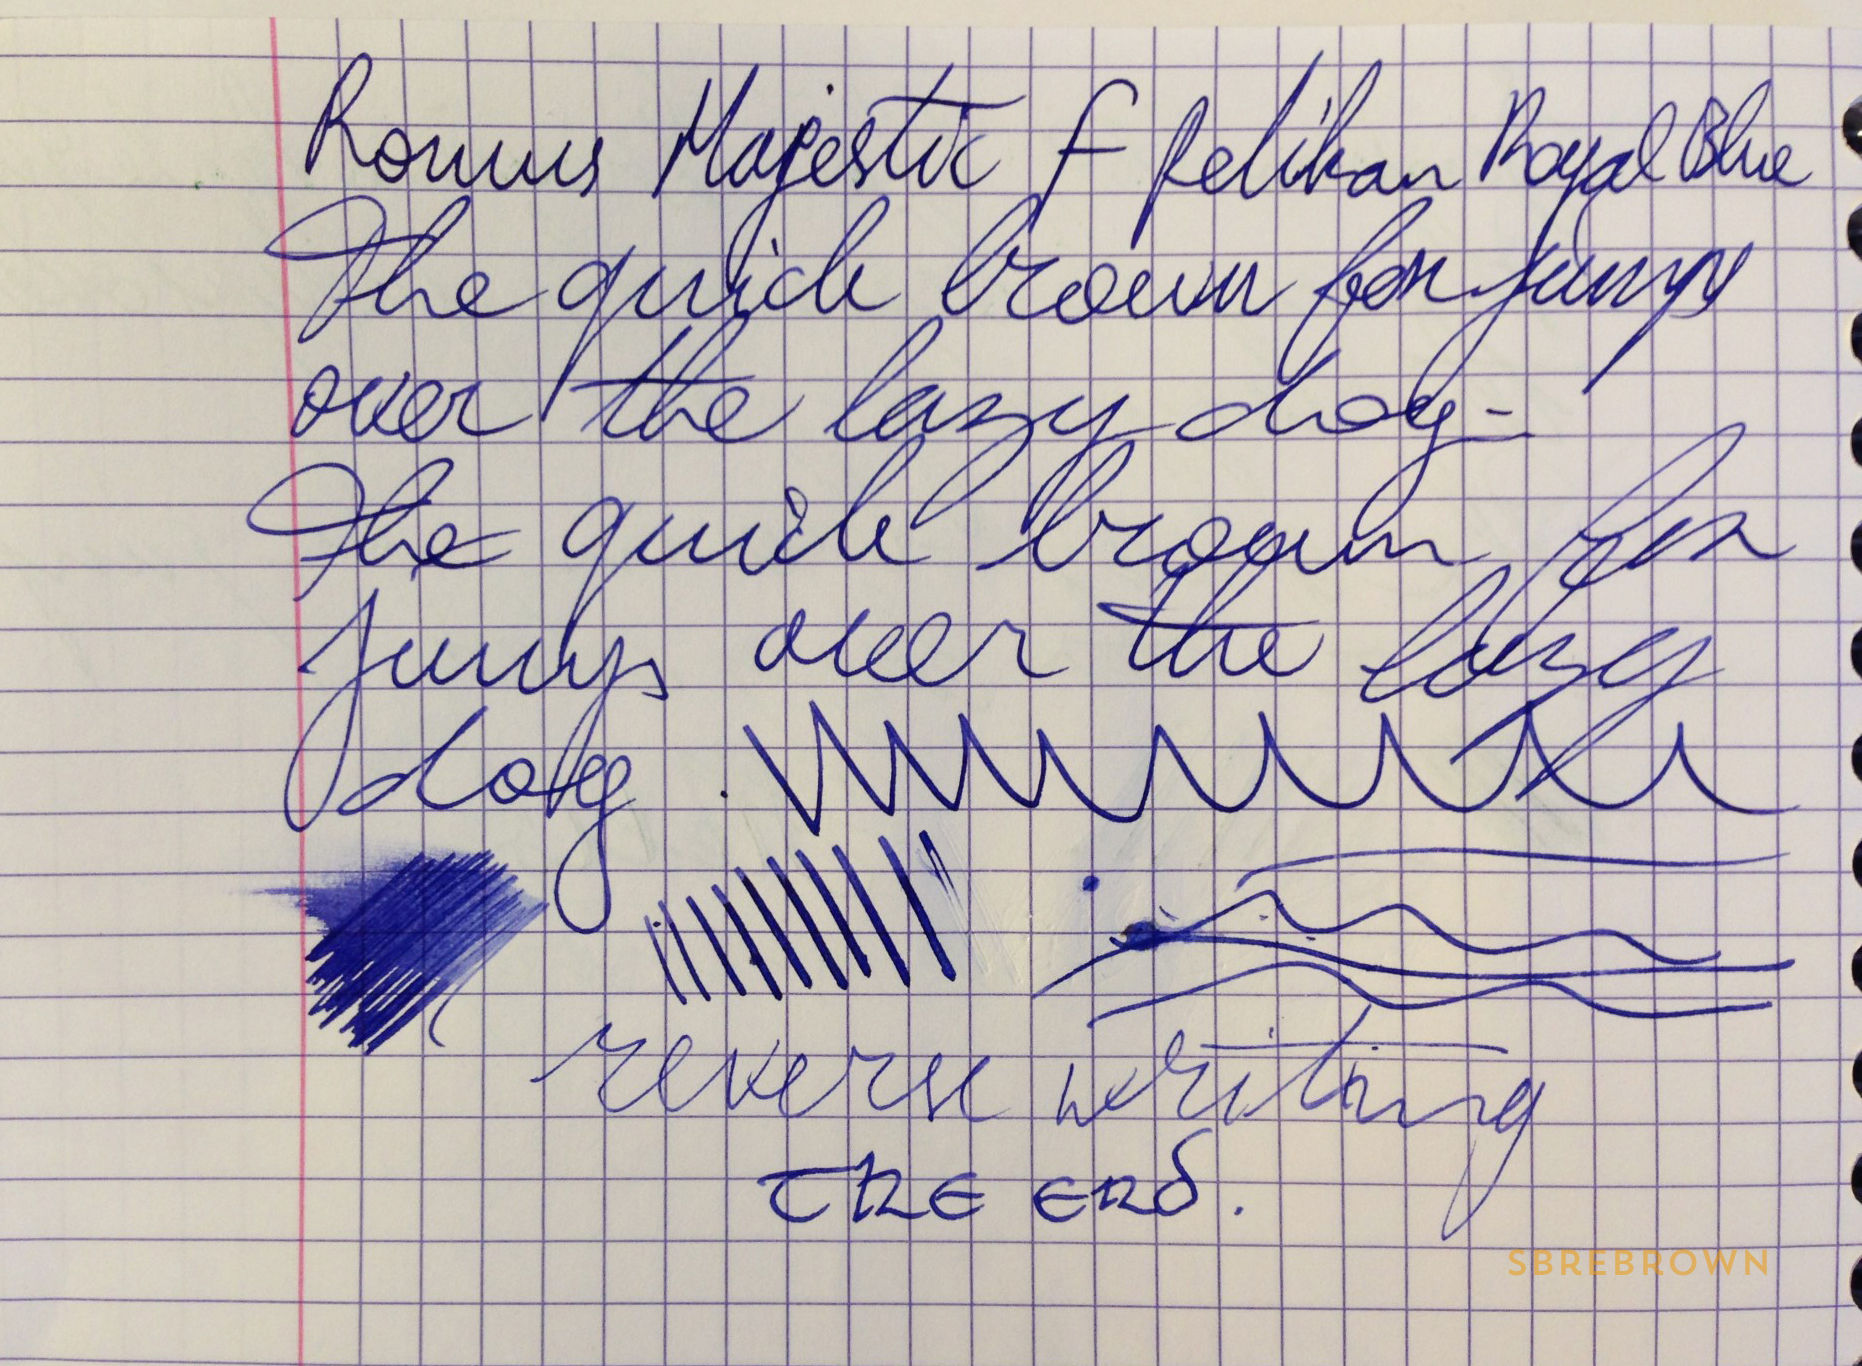 Romus Majestic F Pelikan Royal Blue
The quick brown fox jumps
over the lazy dog-
The quick brown fox
jumps over the lazy
dog.
reverse writing
THE END.
SBREBROWN